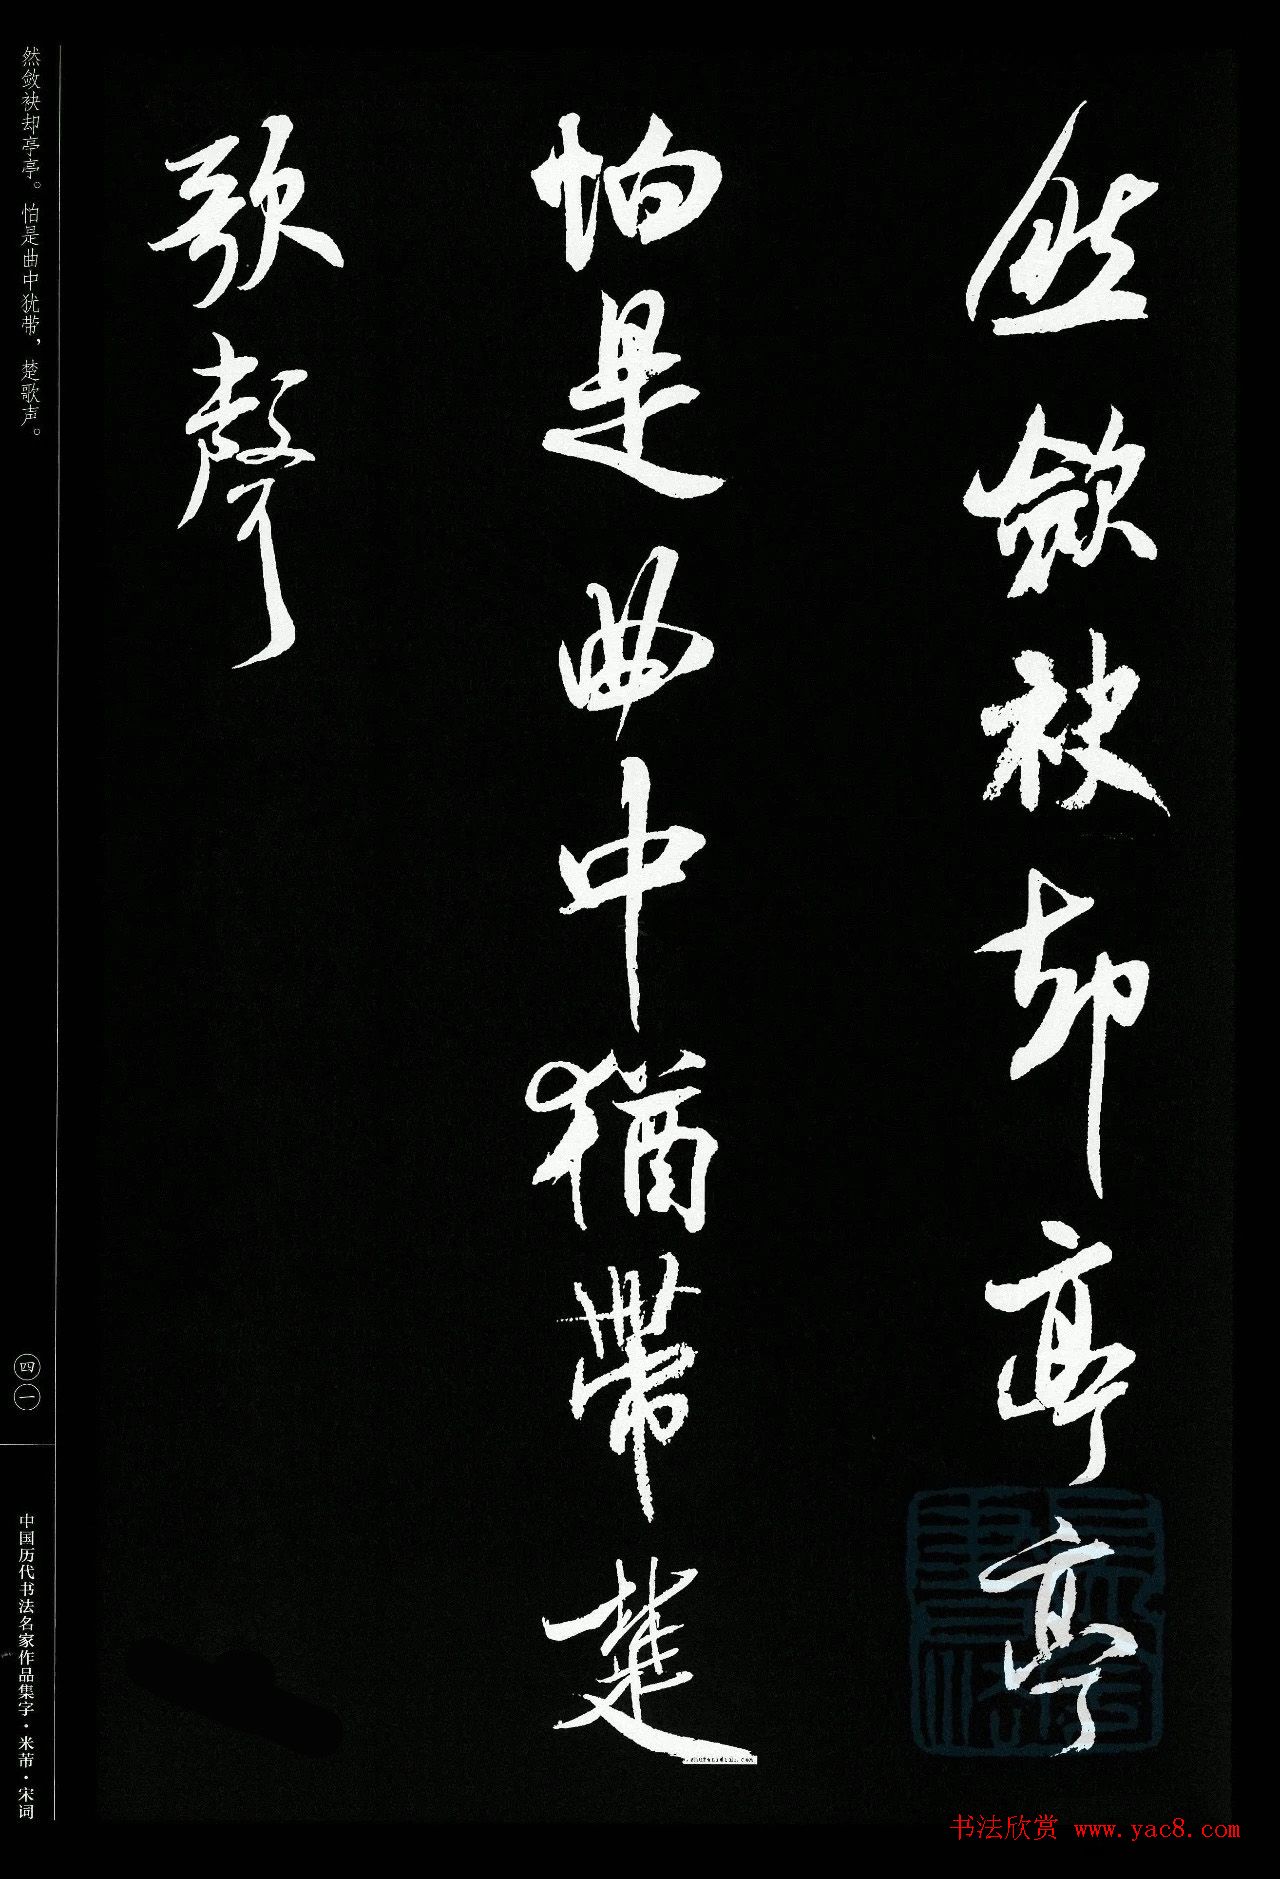 然斂袂却亭亭
怕是曲中猶帶楚
歌聲
然敛袂却亭亭。怕是曲中犹带，楚歌声。
四一
中国历代书法名家作品集字·米芾·宋词
书法欣赏 www.yac8.com